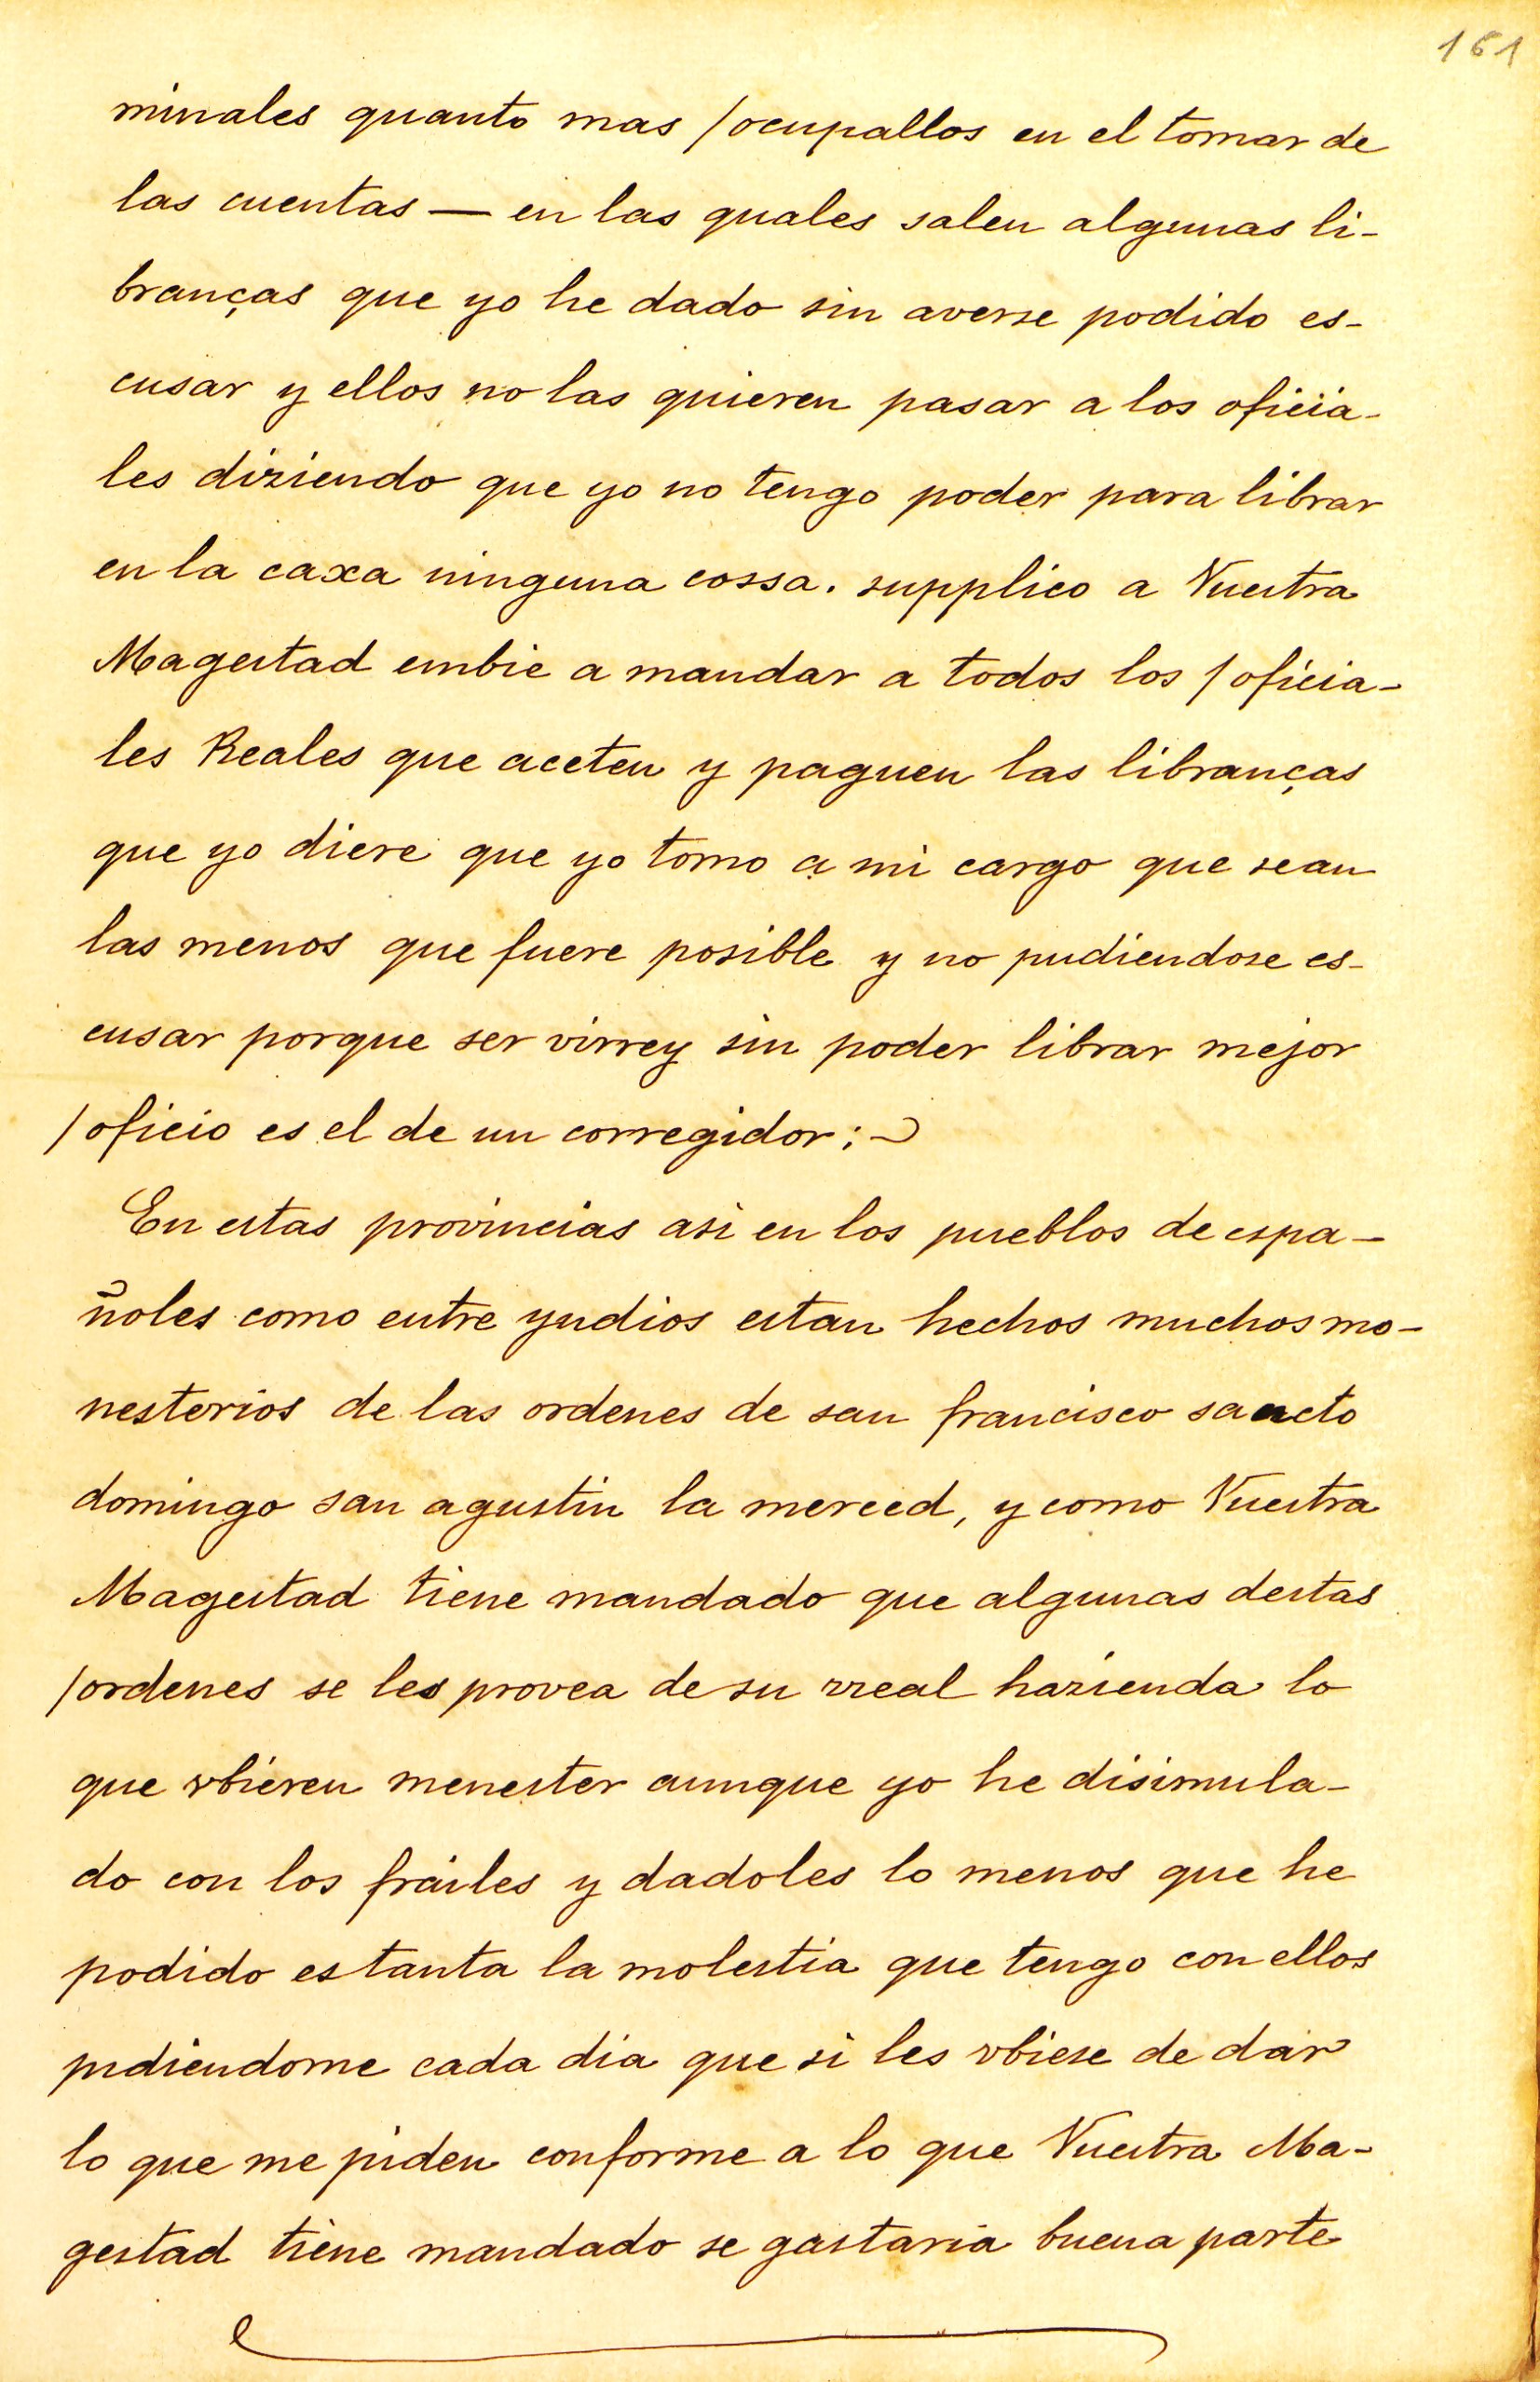 161
minales quanto mas /ocupallos en el tomar de
las cuentas — en las quales salen algunas li-
branças que yo he dado sin averse podido es-
cusar y ellos no las quieren pasar a los oficia-
les diziendo que yo no tengo poder para librar
en la caxa ninguna cossa. supplico a Vuestra
Magestad embie a mandar a todos los /oficia-
les Reales que aceten y paguen las libranças
que yo diere que yo tomo a mi cargo que sean
las menos que fuere posible y no pudiendose es-
cusar porque ser virrey sin poder librar mejor
/oficio es el de un corregidor;-
En estas provincias asi en los pueblos de espa-
ñoles como entre yndios estan hechos muchos mo-
nesterios de las ordenes de san francisco sancto
domingo san agustin la merced, y como Vuestra
Magestad tiene mandado que algunas destas
/ordenes se les provea de su rreal hazienda lo
que vbieren menester aunque yo he disimula-
do con los frailes y dadoles lo menos que he
podido es tanta la molestia que tengo con ellos
pidiendome cada dia que si les vbiese de dar
lo que me piden conforme a lo que Vuestra Ma-
gestad tiene mandado se gastaria buena parte